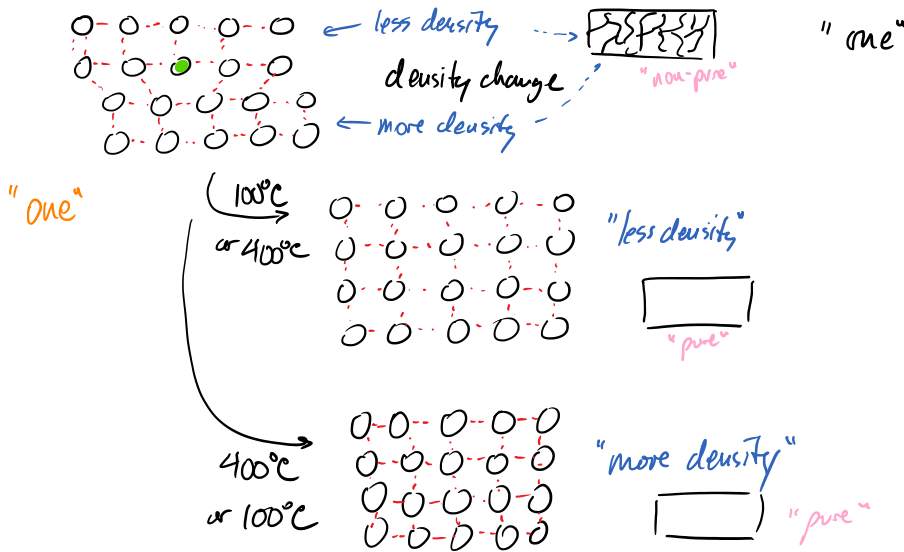 less density
"one"
"non-pure"
density change
more density
"one"
100°C
or 400°C
"less density"
"pure"
400°C
or 100°C
"more density"
"pure"